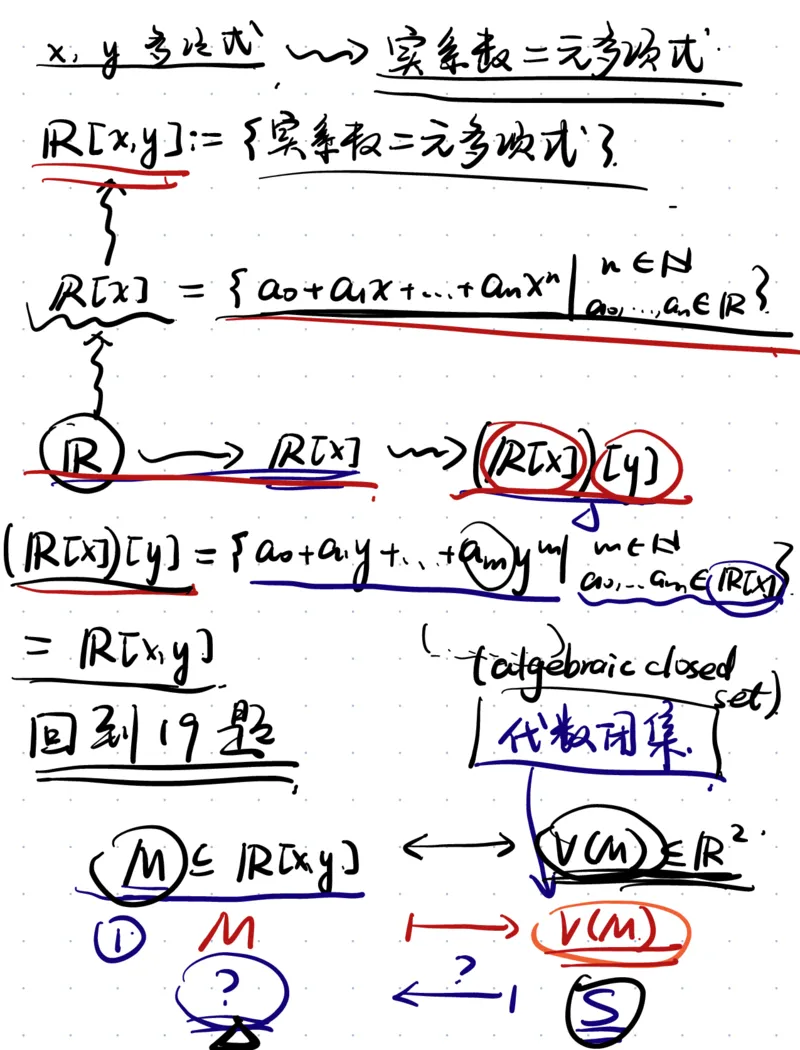 x, y 多项式 ⇝ 实系数二元多项式
ℝ[x,y] := {实系数二元多项式}
ℝ[x] = {a₀+a₁x+...+aₙxⁿ | n∈ℕ a₀,...,aₙ∈ℝ}
ℝ → ℝ[x] ⇝ (ℝ[x])[y]
(ℝ[x])[y] = {a₀+a₁y+...+aₘyᵐ | m∈ℕ a₀,...aₘ∈ℝ[x]}
= ℝ[x,y]
(algebraic closed set)
回到19题
代数闭集
M ⊆ ℝ[x,y] ↔ V(M) ⊆ ℝ²
① M ↦ V(M)
? ? S